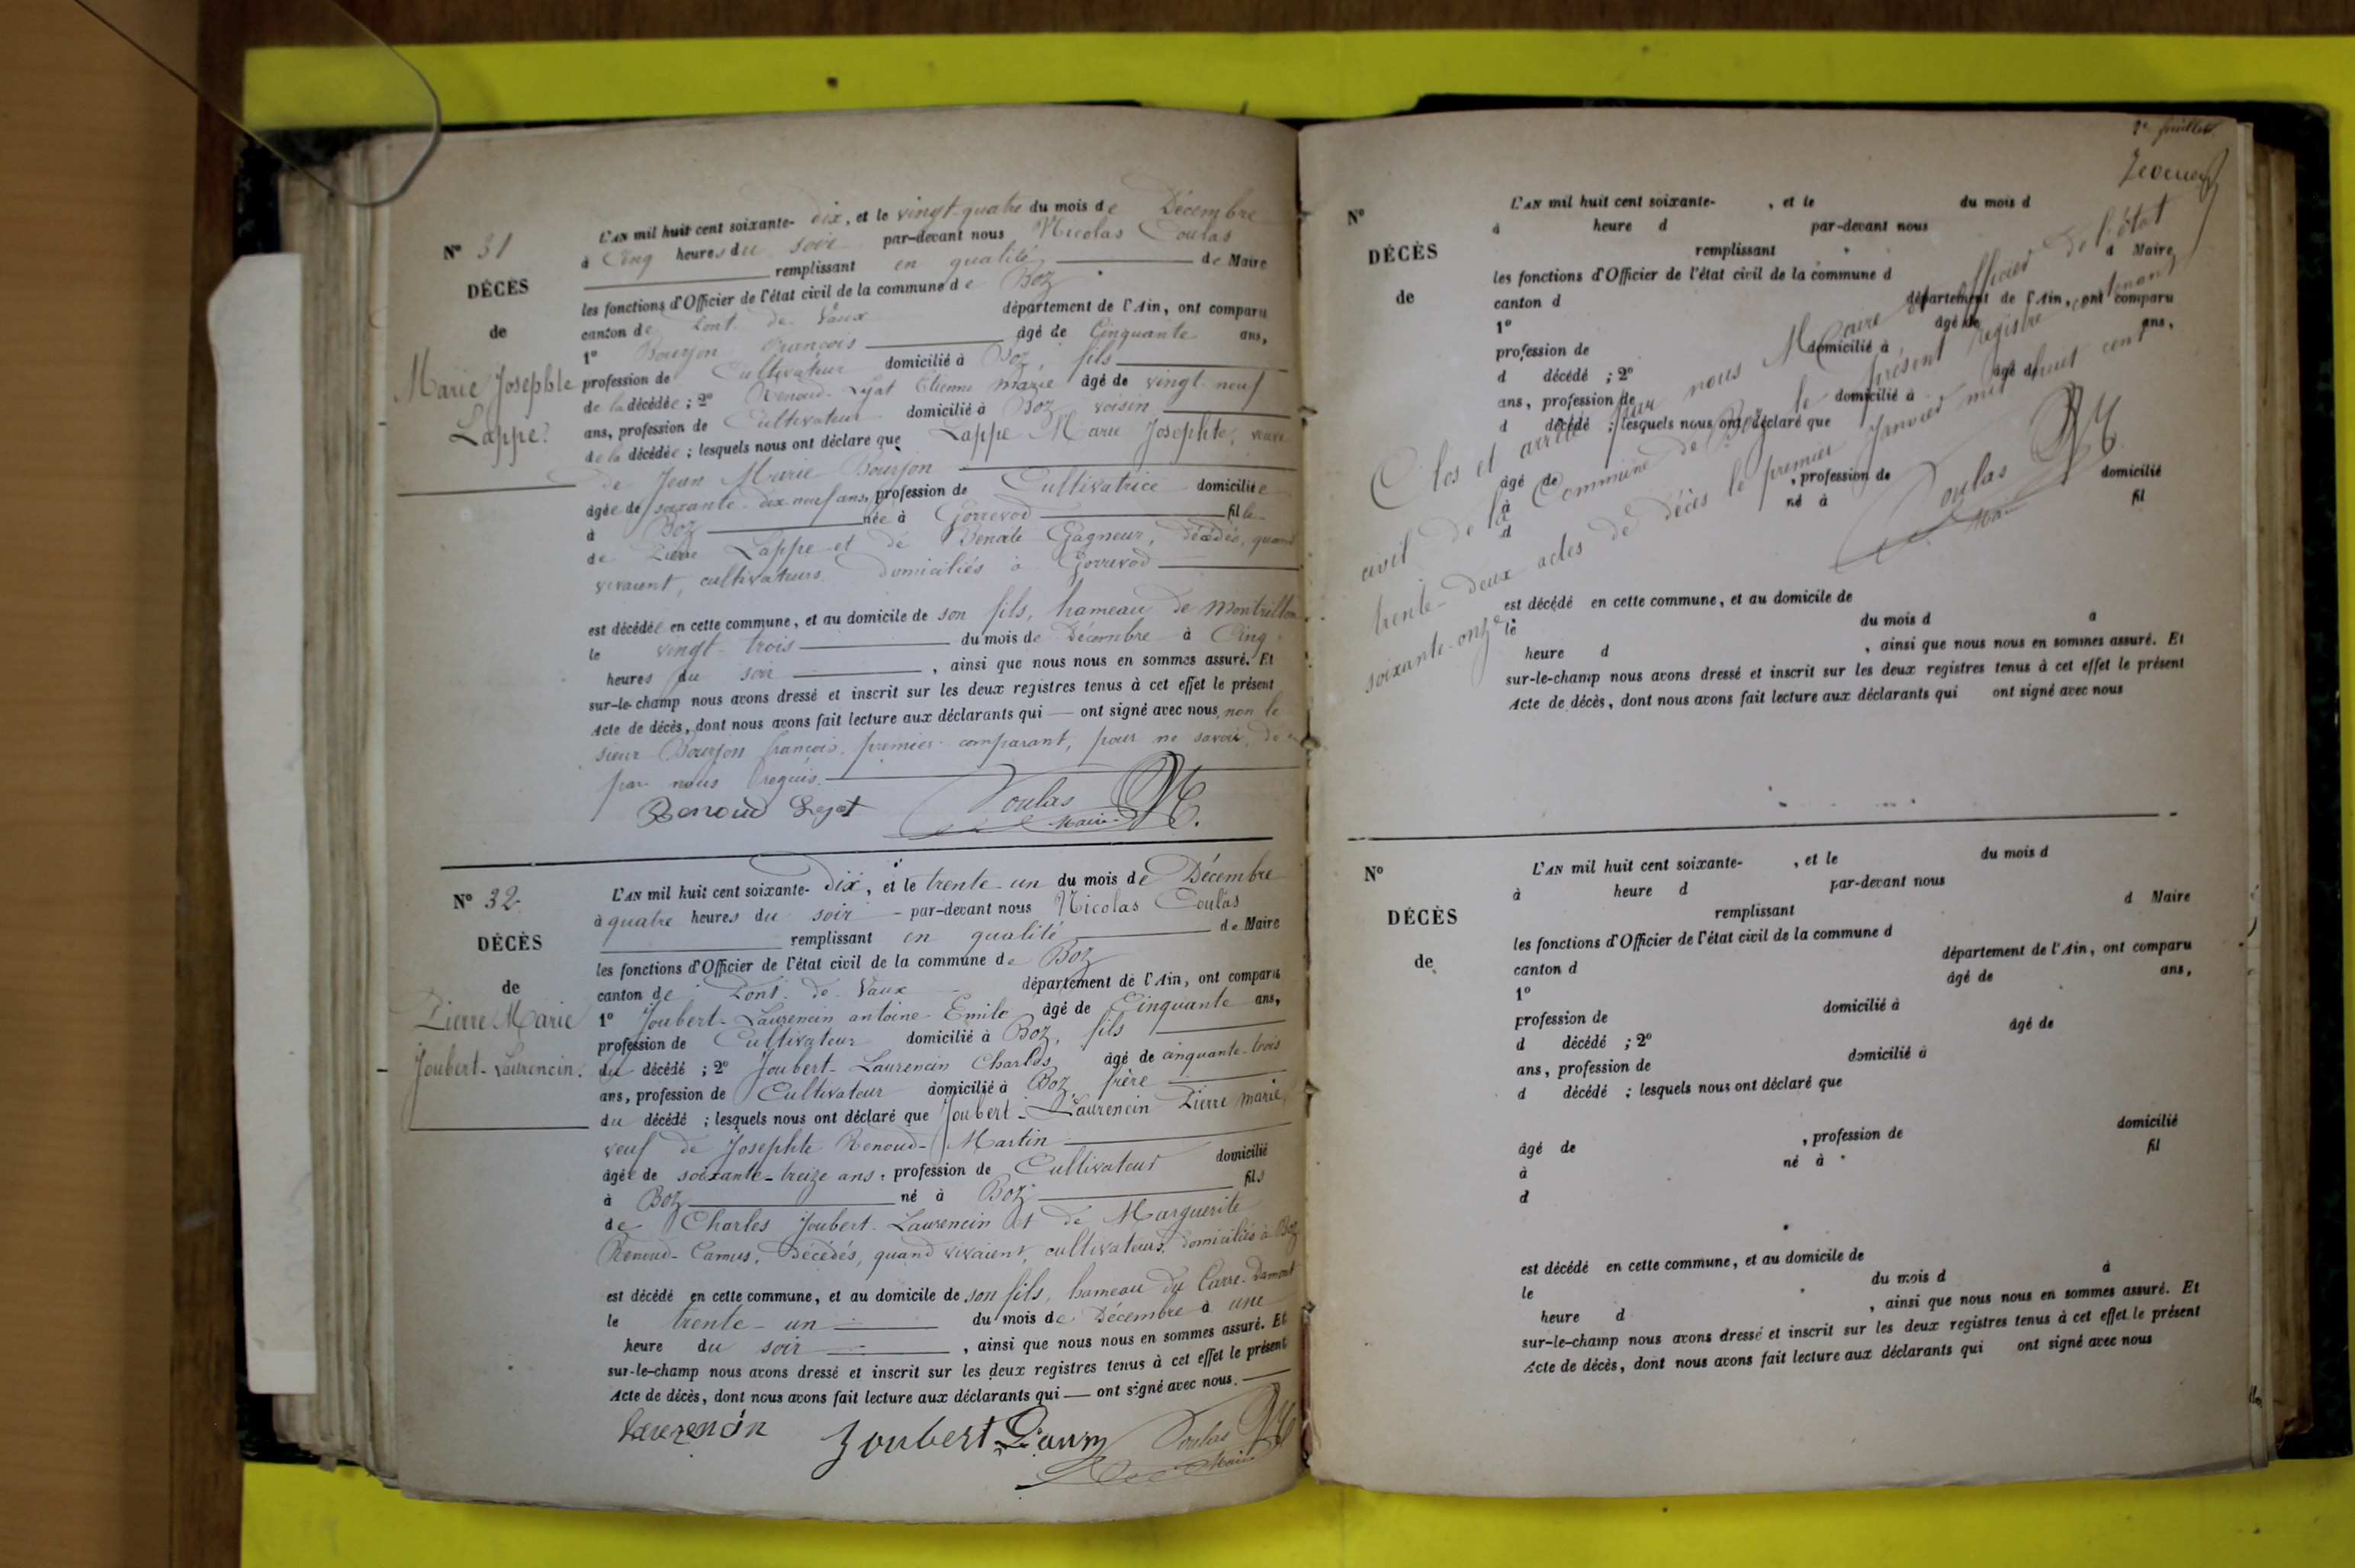 N° 31
DÉCÈS
de
Marie Josephte
Lappe
L'AN mil huit cent soixante-dix, et le vingt-quatre du mois de Décembre
à Cinq heures du soir par-devant nous Nicolas Coulas
remplissant en qualité de Maire
les fonctions d'Officier de l'état civil de la commune de Boz
canton de Pont de Vaux département de l'Ain, ont comparu
1° Bourjon francois âgé de Cinquante ans,
profession de Cultivateur domicilié à Boz, fils
de la décédée ; 2° Renoud-Lyat Etienne marie âgé de vingt neuf
ans, profession de Cultivateur domicilié à Boz voisin
de la décédée ; lesquels nous ont déclaré que Lappe Marie Josephte, veuve
de Jean Marie Bourjon
âgée de soixante-dix-neuf ans, profession de Cultivatrice domiciliée
à Boz née à Gorrevod fille
de Pierre Lappe et de Benoite Gagneur, décédés, quand
vivaient, cultivateurs domiciliés à Gorrevod
est décédée en cette commune, et au domicile de son fils, hameau de Montrillon
le vingt-trois du mois de Décembre à Cinq
heures du soir , ainsi que nous nous en sommes assuré. Et
sur-le-champ nous avons dressé et inscrit sur les deux registres tenus à cet effet le présent
Acte de décès, dont nous avons fait lecture aux déclarants qui ont signé avec nous, non le
sieur Bourjon francois, premier comparant, pour ne savoir, de ce
par nous requis.
Renoud Legat Coulas
Maire
N° 32
DÉCÈS
de
Pierre Marie
Joubert-Laurencin.
L'AN mil huit cent soixante-dix, et le trente-un du mois de Décembre
à quatre heures du soir par-devant nous Nicolas Coulas
remplissant en qualité de Maire
les fonctions d'Officier de l'état civil de la commune de Boz
canton de Pont de Vaux département de l'Ain, ont comparu
1° Joubert-Laurencin antoine Emile âgé de Cinquante ans,
profession de Cultivateur domicilié à Boz, fils
du décédé ; 2° Joubert-Laurencin Charles âgé de cinquante-trois
ans, profession de Cultivateur domicilié à Boz frère
du décédé ; lesquels nous ont déclaré que Joubert-Laurencin Pierre marie,
veuf de Josephte Renoud-Martin
âgée de soixante-treize ans, profession de Cultivateur domicilié
à Boz né à Boz fils
de Charles Joubert-Laurencin et de Marguerite
Renoud-Camus, décédés, quand vivaient, cultivateurs, domiciliés à Boz
est décédé en cette commune, et au domicile de son fils, hameau du Carre-Damont
le trente-un du mois de Décembre à une
heure du soir , ainsi que nous nous en sommes assuré. Et
sur-le-champ nous avons dressé et inscrit sur les deux registres tenus à cet effet le présent
Acte de décès, dont nous avons fait lecture aux déclarants qui ont signé avec nous.
Laurencin Joubert Laurn Coulas
Maire
feuillet
N°
DÉCÈS
de
L'AN mil huit cent soixante- , et le du mois d
à heure d par-devant nous
remplissant d Maire
les fonctions d'Officier de l'état civil de la commune d
canton d département de l'Ain, ont comparu
1° âgé de ans,
profession de domicilié à
d décédé ; 2° âgé de
ans, profession de domicilié à
d décédé ; lesquels nous ont déclaré que
âgé de , profession de domicilié
à né à fil
d
est décédé en cette commune, et au domicile de
le du mois d à
heure d , ainsi que nous nous en sommes assuré. Et
sur-le-champ nous avons dressé et inscrit sur les deux registres tenus à cet effet le présent
Acte de décès, dont nous avons fait lecture aux déclarants qui ont signé avec nous
Clos et arrêté par nous Maire officier de l'état
civil de la Commune de Boz le présent Registre contenant
trente-deux actes de décès le premier Janvier mil huit cent
soixante-onze
Coulas
Maire
N°
DÉCÈS
de
L'AN mil huit cent soixante- , et le du mois d
à heure d par-devant nous
remplissant d Maire
les fonctions d'Officier de l'état civil de la commune d
canton d département de l'Ain, ont comparu
1° âgé de ans,
profession de domicilié à
d décédé ; 2° âgé de
ans, profession de domicilié à
d décédé ; lesquels nous ont déclaré que
âgé de , profession de domicilié
à né à fil
d
est décédé en cette commune, et au domicile de
le du mois d à
heure d , ainsi que nous nous en sommes assuré. Et
sur-le-champ nous avons dressé et inscrit sur les deux registres tenus à cet effet le présent
Acte de décès, dont nous avons fait lecture aux déclarants qui ont signé avec nous